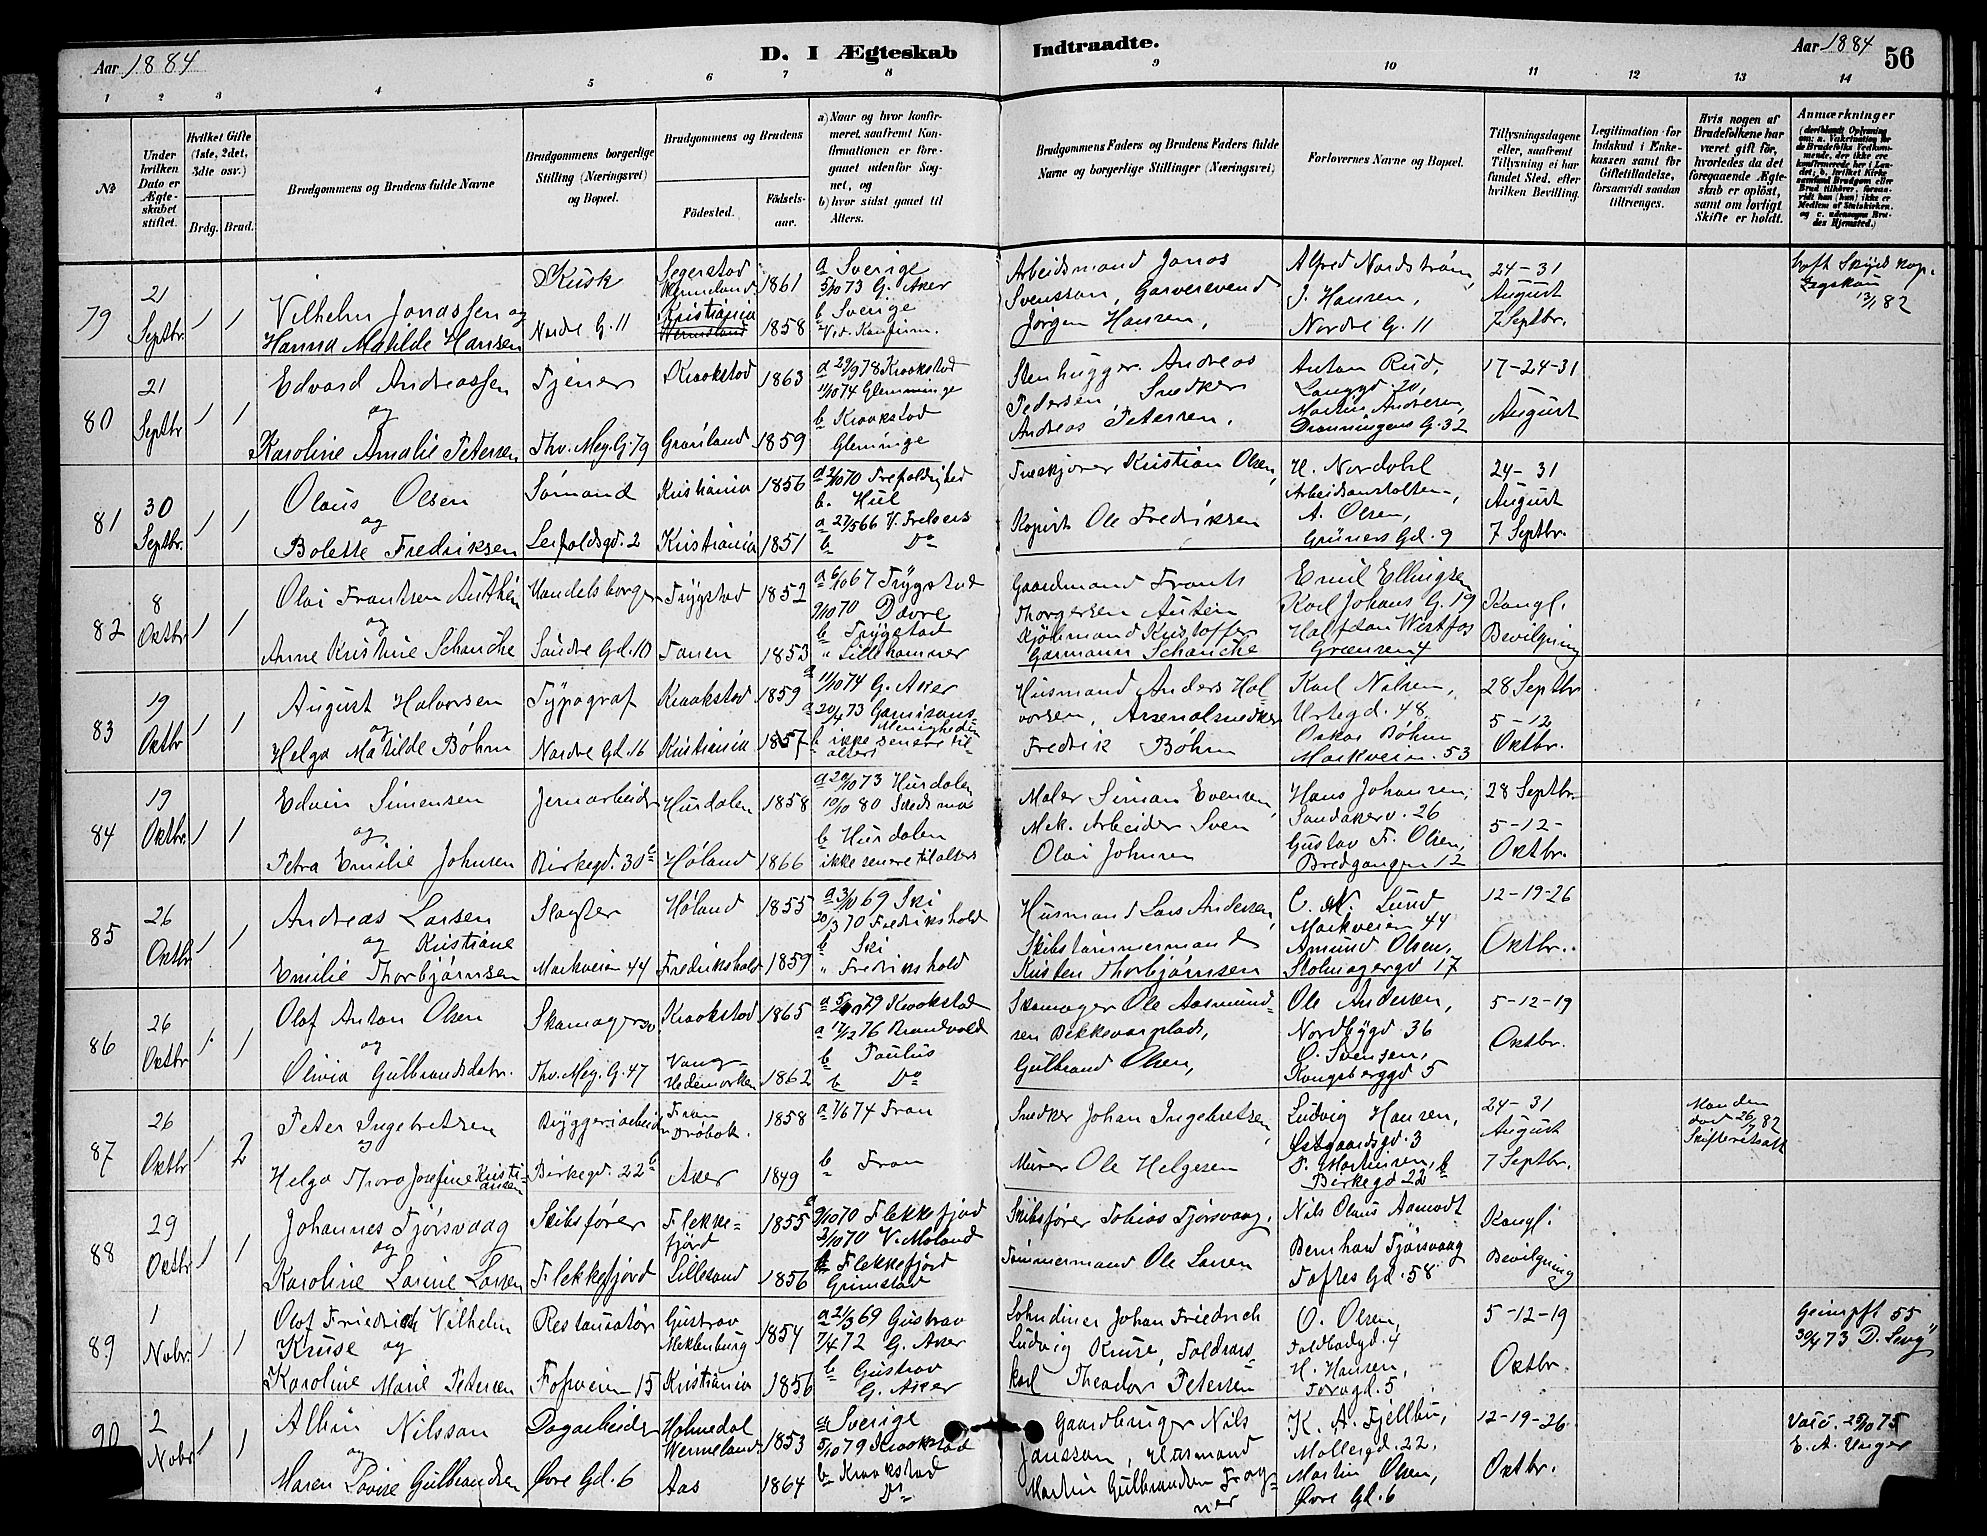 Aar 1884
D. I Ægteskab
Indtraadte.
Aar 1884
56
1 2 3 4 5 6 7 8 9 10 11 12 13 14
No
Under hvilken Dato er Ægteskabet stiftet.
Hvilket Gifte (1ste, 2det, 3die osv.)
Brdg. Brud.
Brudgommens og Brudens fulde Navne
Brudgommens borgerlige Stilling (Næringsvei) og Bopæl.
Brudgommens og Brudens
Fødested.
Fødselsaar.
a) Naar og hvor konfirmeret, saafremt Konfirmationen er foregaaet udenfor Sognet, og
b) hvor sidst gaaet til Alters.
Brudgommens Faders og Brudens Faders fulde Navne og borgerlige Stillinger (Næringsvei)
Forlovernes Navne og Bopæl.
Tillysningsdagene eller, saafremt Tillysning ei har fundet Sted, efter hvilken Bevilling.
Legitimation for Indskud i Enkekassen samt for Giftetilladelse, forsaavidt saadan tiltrænges.
Hvis nogen af Brudefolkene har været gift før, hvorledes da det foregaaende Ægteskab er opløst, samt om lovligt Skifte er holdt.
Anmærkninger
79
21 Septbr. 1 1
Vilhelm Jonassen og
Hanna Matilde Hansen
Kusk
Nordre G. 11
Segerstad
Kristiania
1861
1858
a Sverige
5/10 73 G. Aker
b Sverige
Arbeidsmand Jonas
Svensson, Garversvend
Jørgen Hansen,
Alfred Nordstrøm,
J. Hansen,
Nordre G. 11
24-31
August
7 Septbr.
80
21 Septbr 1 1
Edvard Andreassen
og
Karoline Amalie Petersen
Tjener
Thv. Mey. G. 79
Kraakstad
Grønland
1863
1859
a 29/9 78 Kraakstad
11/10 74 Glemminge
b Kraakstad
Gleminge
Stenhugger Andreas
Pedersen, Snedker
Andreas Petersen.
Anton Rud,
Langgd. 20,
Martin Andresen,
Dronningens G. 32
17-24-31
August
81
30 Septbr. 1 1
Olaus Olsen
og
Bolette Fredriksen
Sømand
Leifoldsgd. 2
Kristiania
Kristiania
1856
1851
a 2/10 70 Trefoldighed
b. Hul
a 27/5 66 V. Frelsers
b Do
Kristian Olsen,
Kopist Ole Fredriksen
H. Nordahl
Arbeidsanstalten,
A. Olsen,
Grüners Gd. 9
24-31
August
7 Septbr.
82
8 Oktbr. 1 1
Olai Frantsen Authen
og
Anne Kristine Schanche
Handelsborger
Søndre Gd. 10
Trygstad
Fanen
1852
1853
a 6/10 67 Trygstad
9/10 70 Dovre
b Trygstad
" Lillehammer
Gaardmand Frants
Thorgersen Auten
Kjøbmand Kristoffer
Garmann Schanche
Emil Ellingsen
Karl Johans G. 19
Halfdan Westfos
Grænsen 4
Kongl.
Bevilgning
83
19 Oktbr 1 1
August Halvorsen
og
Helga Matilde Bøhm
Typograf
Nordre Gd. 16
Kraakstad
Kristiania
1859
1857
a 11/10 74 G. Aker
a 20/4 73 Garnisons-
Menigheden
b ikke senere til-
alters
Husmand Anders Hal
vorsen, Arsenalsnedker
Fredrik Bøhm
Karl Nilsen,
Urtegd. 48.
Oskar Bøhm
Markveien. 53
28 Septbr
5-12
Oktbr.
84
19 Oktbr. 1 1
Edvin Simensen
og
Petra Emilie Johnsen
Jernarbeider
Birkegd. 30 b
Hurdalen
Høland
1858
1866
a 20/10 73 Hurdalen
10/10 80 Skedsmo
b Hurdalen
ikke senere tilalters
Maler Simon Evensen,
Mek. Arbeider Sven
Olai Johnsen
Hans Johansen,
Sandakerv. 26
Gustav F. Olsen,
Bredgangen 12
28 Septbr.
5-12-
Oktbr.
85
26 Oktbr 1 1
Andreas Larsen
og Kristiane
Emilie Thorbjørnsen
Slagter
Markveien 44
Høland
Frederikshald
1855
1859
a 3/10 69 Ski
20/3 70 Fredrikshald
b Ski
" Fredrikshald
Husmand Lars Andersen,
Skibstømmermand
Kristen Thorbjørnsen
C. M. Lund
Markveien 44
Amund Olsen,
Stolmagergd 17
12-19-26
Oktbr.
86
26 Oktbr 1 1
Olof Anton Olsen
og
Olivia Gulbrandsdatr.
Skomagersv
Thv. Mey. G. 47
Kraakstad
Vang
Hedemarken
1865
1862
Kraakstad
a 17/12 76 Brandvold
b Paulus
b Do
Skomager Ole Aasmund-
sen Bekkevarplads,
Gulbrand Olsen,
Ole Andersen,
Nordbygd 36
O. Svensen,
Kongsberggd 5
5-12-19
Oktbr.
87
26 Oktbr 1 2
Peter Ingebretsen
og
Helga Thora Josefine Kristi-
ansen
Bryggeriarbeider
Birkegd. 22 b
Fron
Drøbak.
Aker
1858
1849
a 7/6 74 Fron
b Fron
Snedker Johan Ingebretsen,
Murer Ole Helgesen
Ludvig Hansen,
Østgaardsgd. 3
P. Martinsen,
Birkegd 22 b
24-31
August
7 Septbr.
Manden
død 26/7 82
Skifteretsatt
88
29 Oktbr 1 1
Johannes Tjørsvaag
og
Karoline Lovine Larsen
Skibsfører
Flekkefjord
Flekke-
fjord
Lillesand
1855
1856
a 9/10 70 Flekkefjord
2/10 70 V. Moland
b Flekkefjord
Grimstad
Skibsfører Tobias Tjørsvaag,
Tømmermand Ole Larsen
Nils Olaus Aamodt
Bernhard Tjørsvaag
Toftes Gd. 58
Kongl.
Bevilgning
89
1 Nobr. 1 1
Olof Friedrich Vilhelm
Kruse og
Karoline Marie Petersen
Restauratør
Fossveien 15
Gustrov
Meklenburg
Kristiania
1854
1856
a 21/3 69 Gustrav
7/4 72 G. Aker
b Gustrov
G. Aker
Lohndiner Johan Friedrich
Ludvig Kruse, Toldvags-
karl Theodor Petersen
O. Olsen,
Toldbodgd. 4
H. Hansen,
Torvgd. 5
5-12-19
Oktbr.
Geimpft 55
30/4 73 D.
90
2 Nobr 1 1
Albin Nilsson
og
Maren Lovise Gulbrandsen
Dagarbeider
Øvre Gd. 6
Holmedal
Wermeland
Aas
1853
1864
a Sverige
5/10 79 Kraakstad
b Kraakstad
Do
Gaardbruger Nils
Jansson, Husmand
Martin Gulbrandsen Frog-
ner
K. A. Fjellbu,
Møllergd. 22.
Martin Olsen,
Øvre Gd. 6
12-19-26
Oktbr.
Vacc. 25/10 75
E. A. Unger